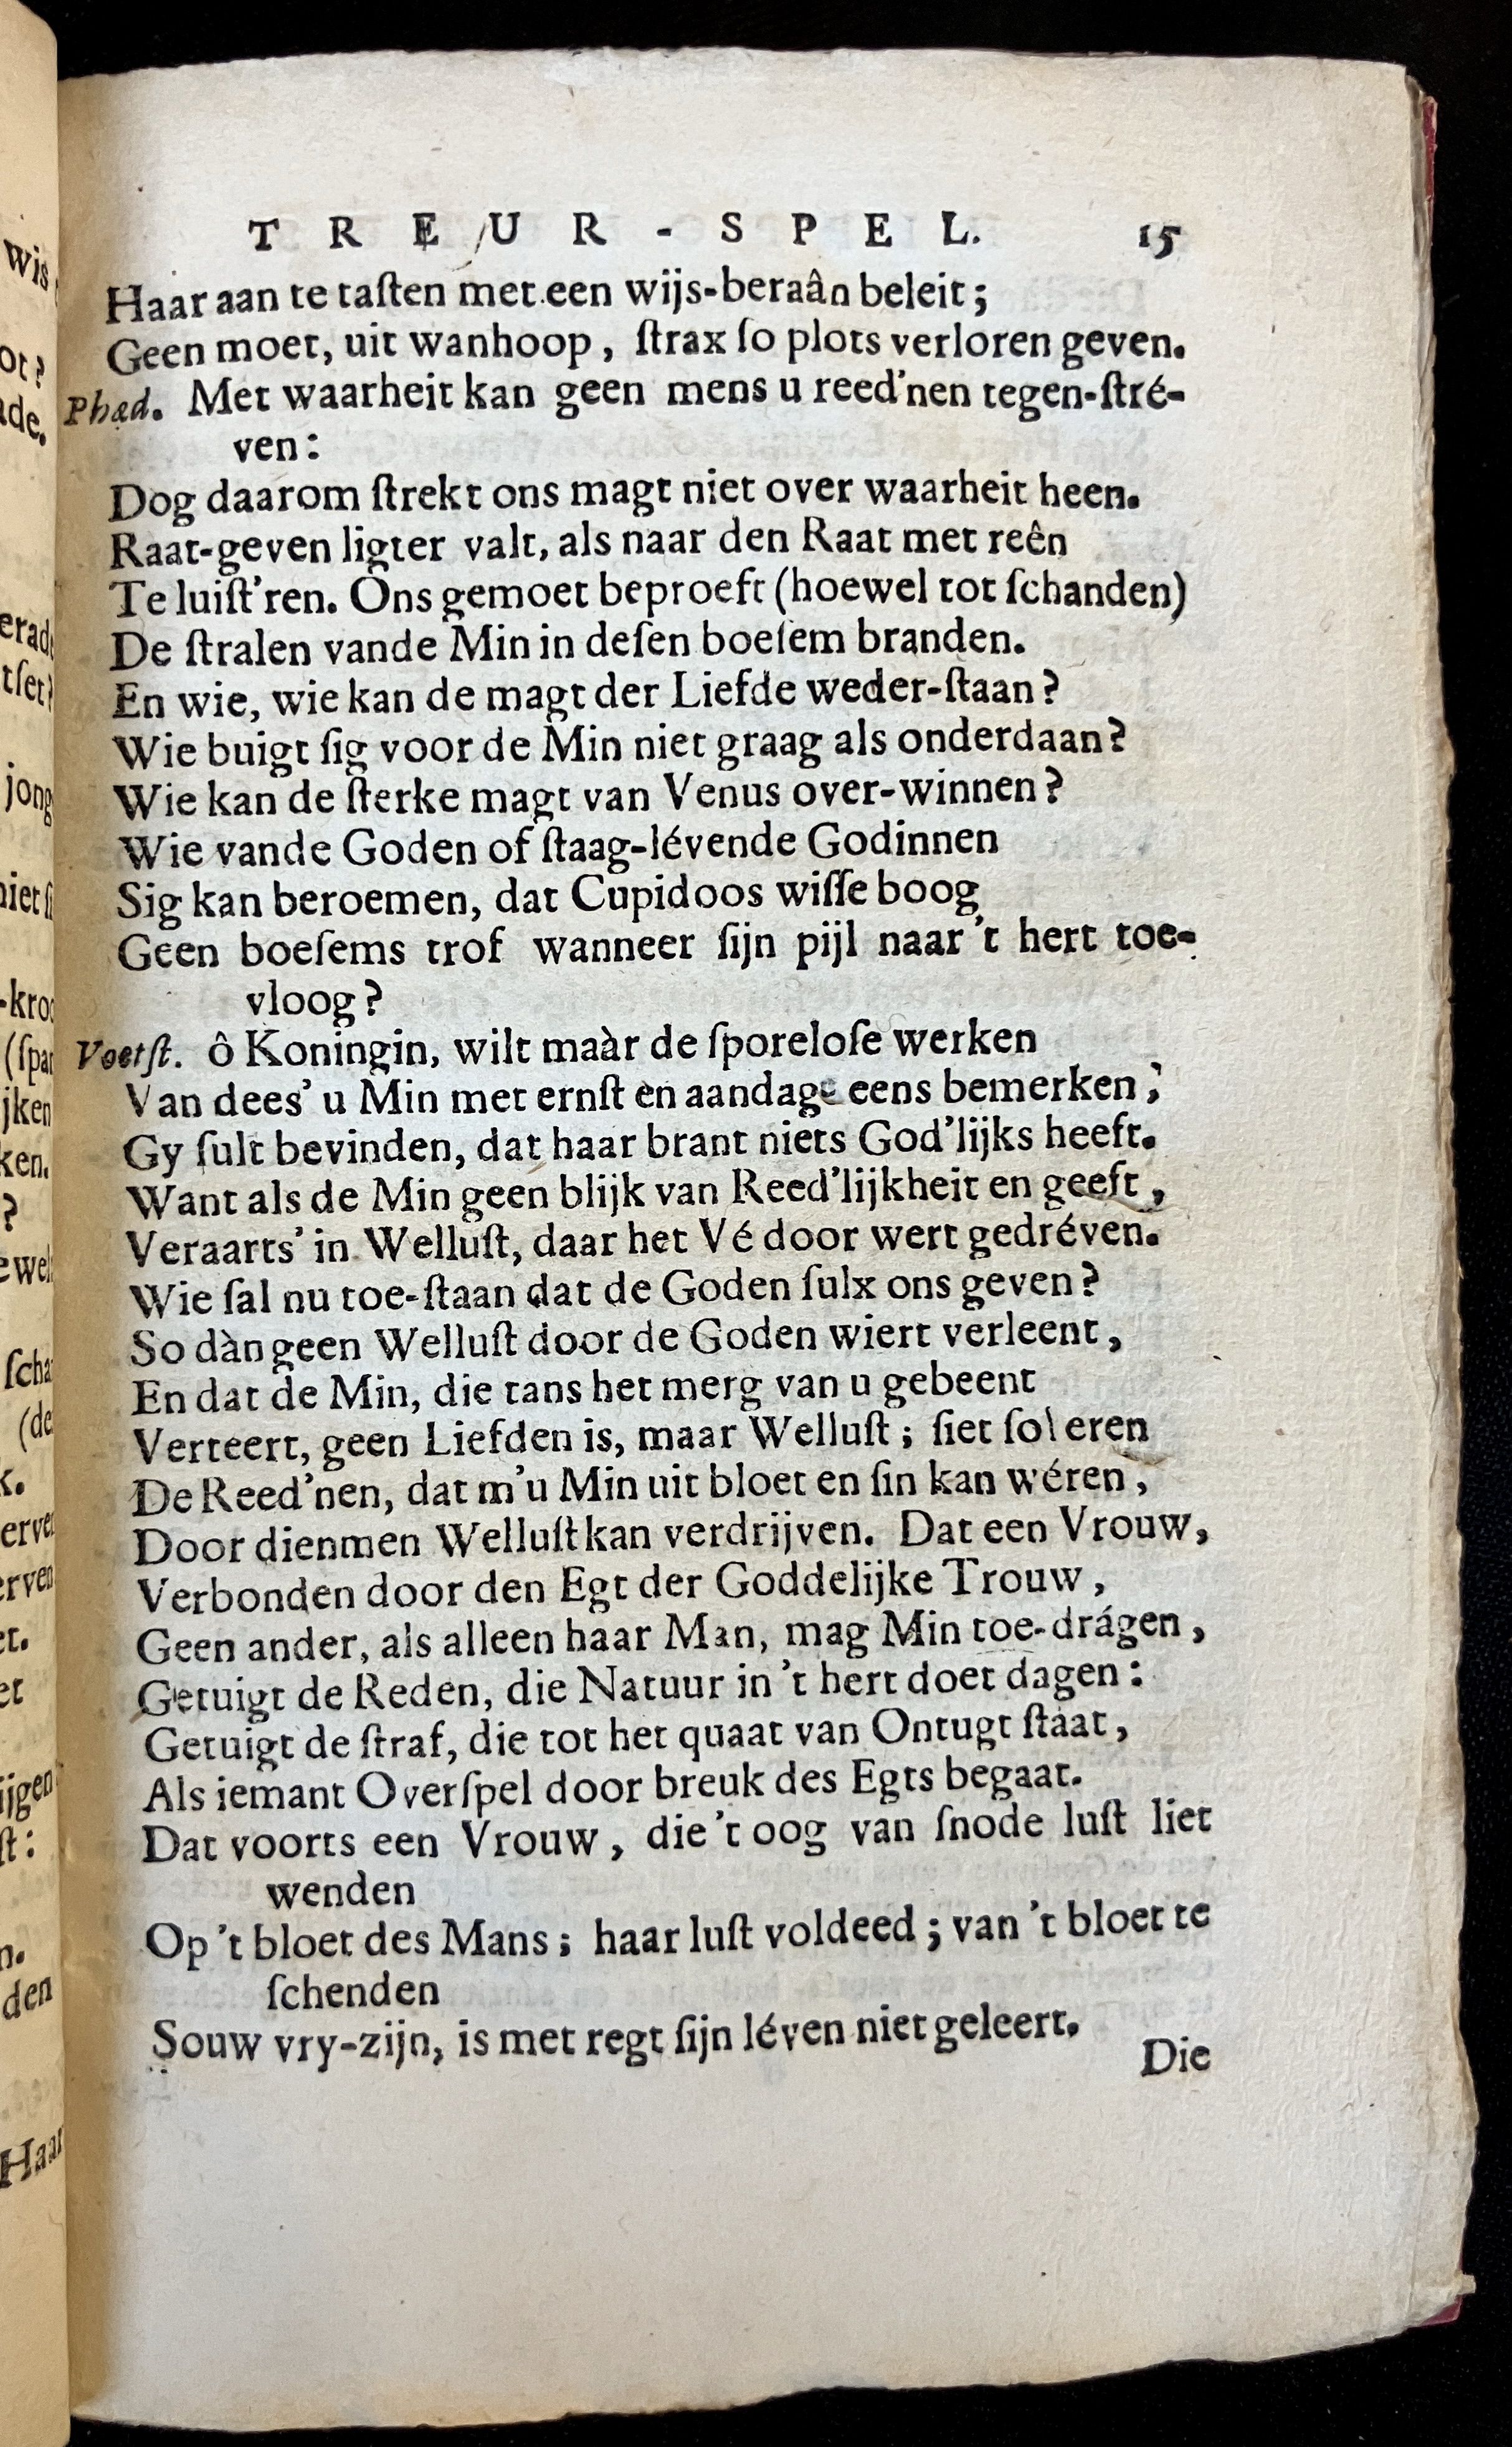 TREUR-SPEL. 15
Haar aan te taſten met een wijs-beraân beleit;
Geen moet, uit wanhoop, ſtrax ſo plots verloren geven.
Phæd. Met waarheit kan geen mens u reed'nen tegen-ſtré-
ven:
Dog daarom ſtrekt ons magt niet over waarheit heen.
Raat-geven ligter valt, als naar den Raat met reên
Te luiſt'ren. Ons gemoet beproeft (hoewel tot ſchanden)
De ſtralen vande Min in deſen boeſem branden.
En wie, wie kan de magt der Liefde weder-ſtaan?
Wie buigt ſig voor de Min niet graag als onderdaan?
Wie kan de ſterke magt van Venus over-winnen?
Wie vande Goden of ſtaag-lévende Godinnen
Sig kan beroemen, dat Cupidoos wiſſe boog
Geen boeſems trof wanneer ſijn pijl naar 't hert toe-
vloog?
Voetſt. ô Koningin, wilt maàr de ſporeloſe werken
Van dees' u Min met ernſt èn aandagt eens bemerken;
Gy ſult bevinden, dat haar brant niets God'lijks heeft.
Want als de Min geen blijk van Reed'lijkheit en geeft,
Veraarts' in Welluſt, daar het Vé door wert gedréven.
Wie ſal nu toe-ſtaan dat de Goden ſulx ons geven?
So dàn geen Welluſt door de Goden wiert verleent,
En dat de Min, die tans het merg van u gebeent
Verteert, geen Liefden is, maar Welluſt; ſiet ſo leren
De Reed'nen, dat m'u Min uit bloet en ſin kan wéren,
Door dienmen Welluſt kan verdrijven. Dat een Vrouw,
Verbonden door den Egt der Goddelijke Trouw,
Geen ander, als alleen haar Man, mag Min toe-drágen,
Getuigt de Reden, die Natuur in 't hert doet dagen:
Getuigt de ſtraf, die tot het quaat van Ontugt ſtaat,
Als iemant Overſpel door breuk des Egts begaat.
Dat voorts een Vrouw, die 't oog van ſnode luſt liet
wenden
Op 't bloet des Mans; haar luſt voldeed; van 't bloet te
ſchenden
Souw vry-zijn, is met regt ſijn léven niet geleert.
Die